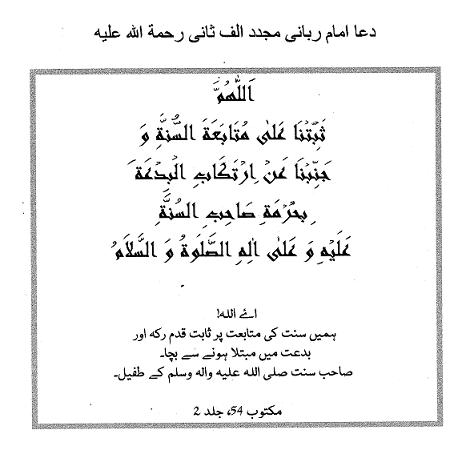 دعا امام ربانی مجدد الف ثانی رحمة الله علیه
اَللّٰهُمَّ
ثَبِّتْنَا عَلٰى مُتَابَعَةَ السُّنَّةِ وَ
جَنِّبْنَا عَنْ اِرْتَكَابِ الْبِدْعَةَ
بِحُرْمَةِ صَاحِبِ السُنَّةِ
عَلَيْهِ وَ عَلٰى اٰلِهِ الصَّلٰوةُ وَ السَّلَامُ
ائے الله!
ہمیں سنت کی متابعت پر ثابت قدم رکھ اور
بدعت میں مبتلا ہونے سے بچا۔
صاحب سنت صلی الله علیه واله وسلم کے طفیل۔
مکتوب 54، جلد 2